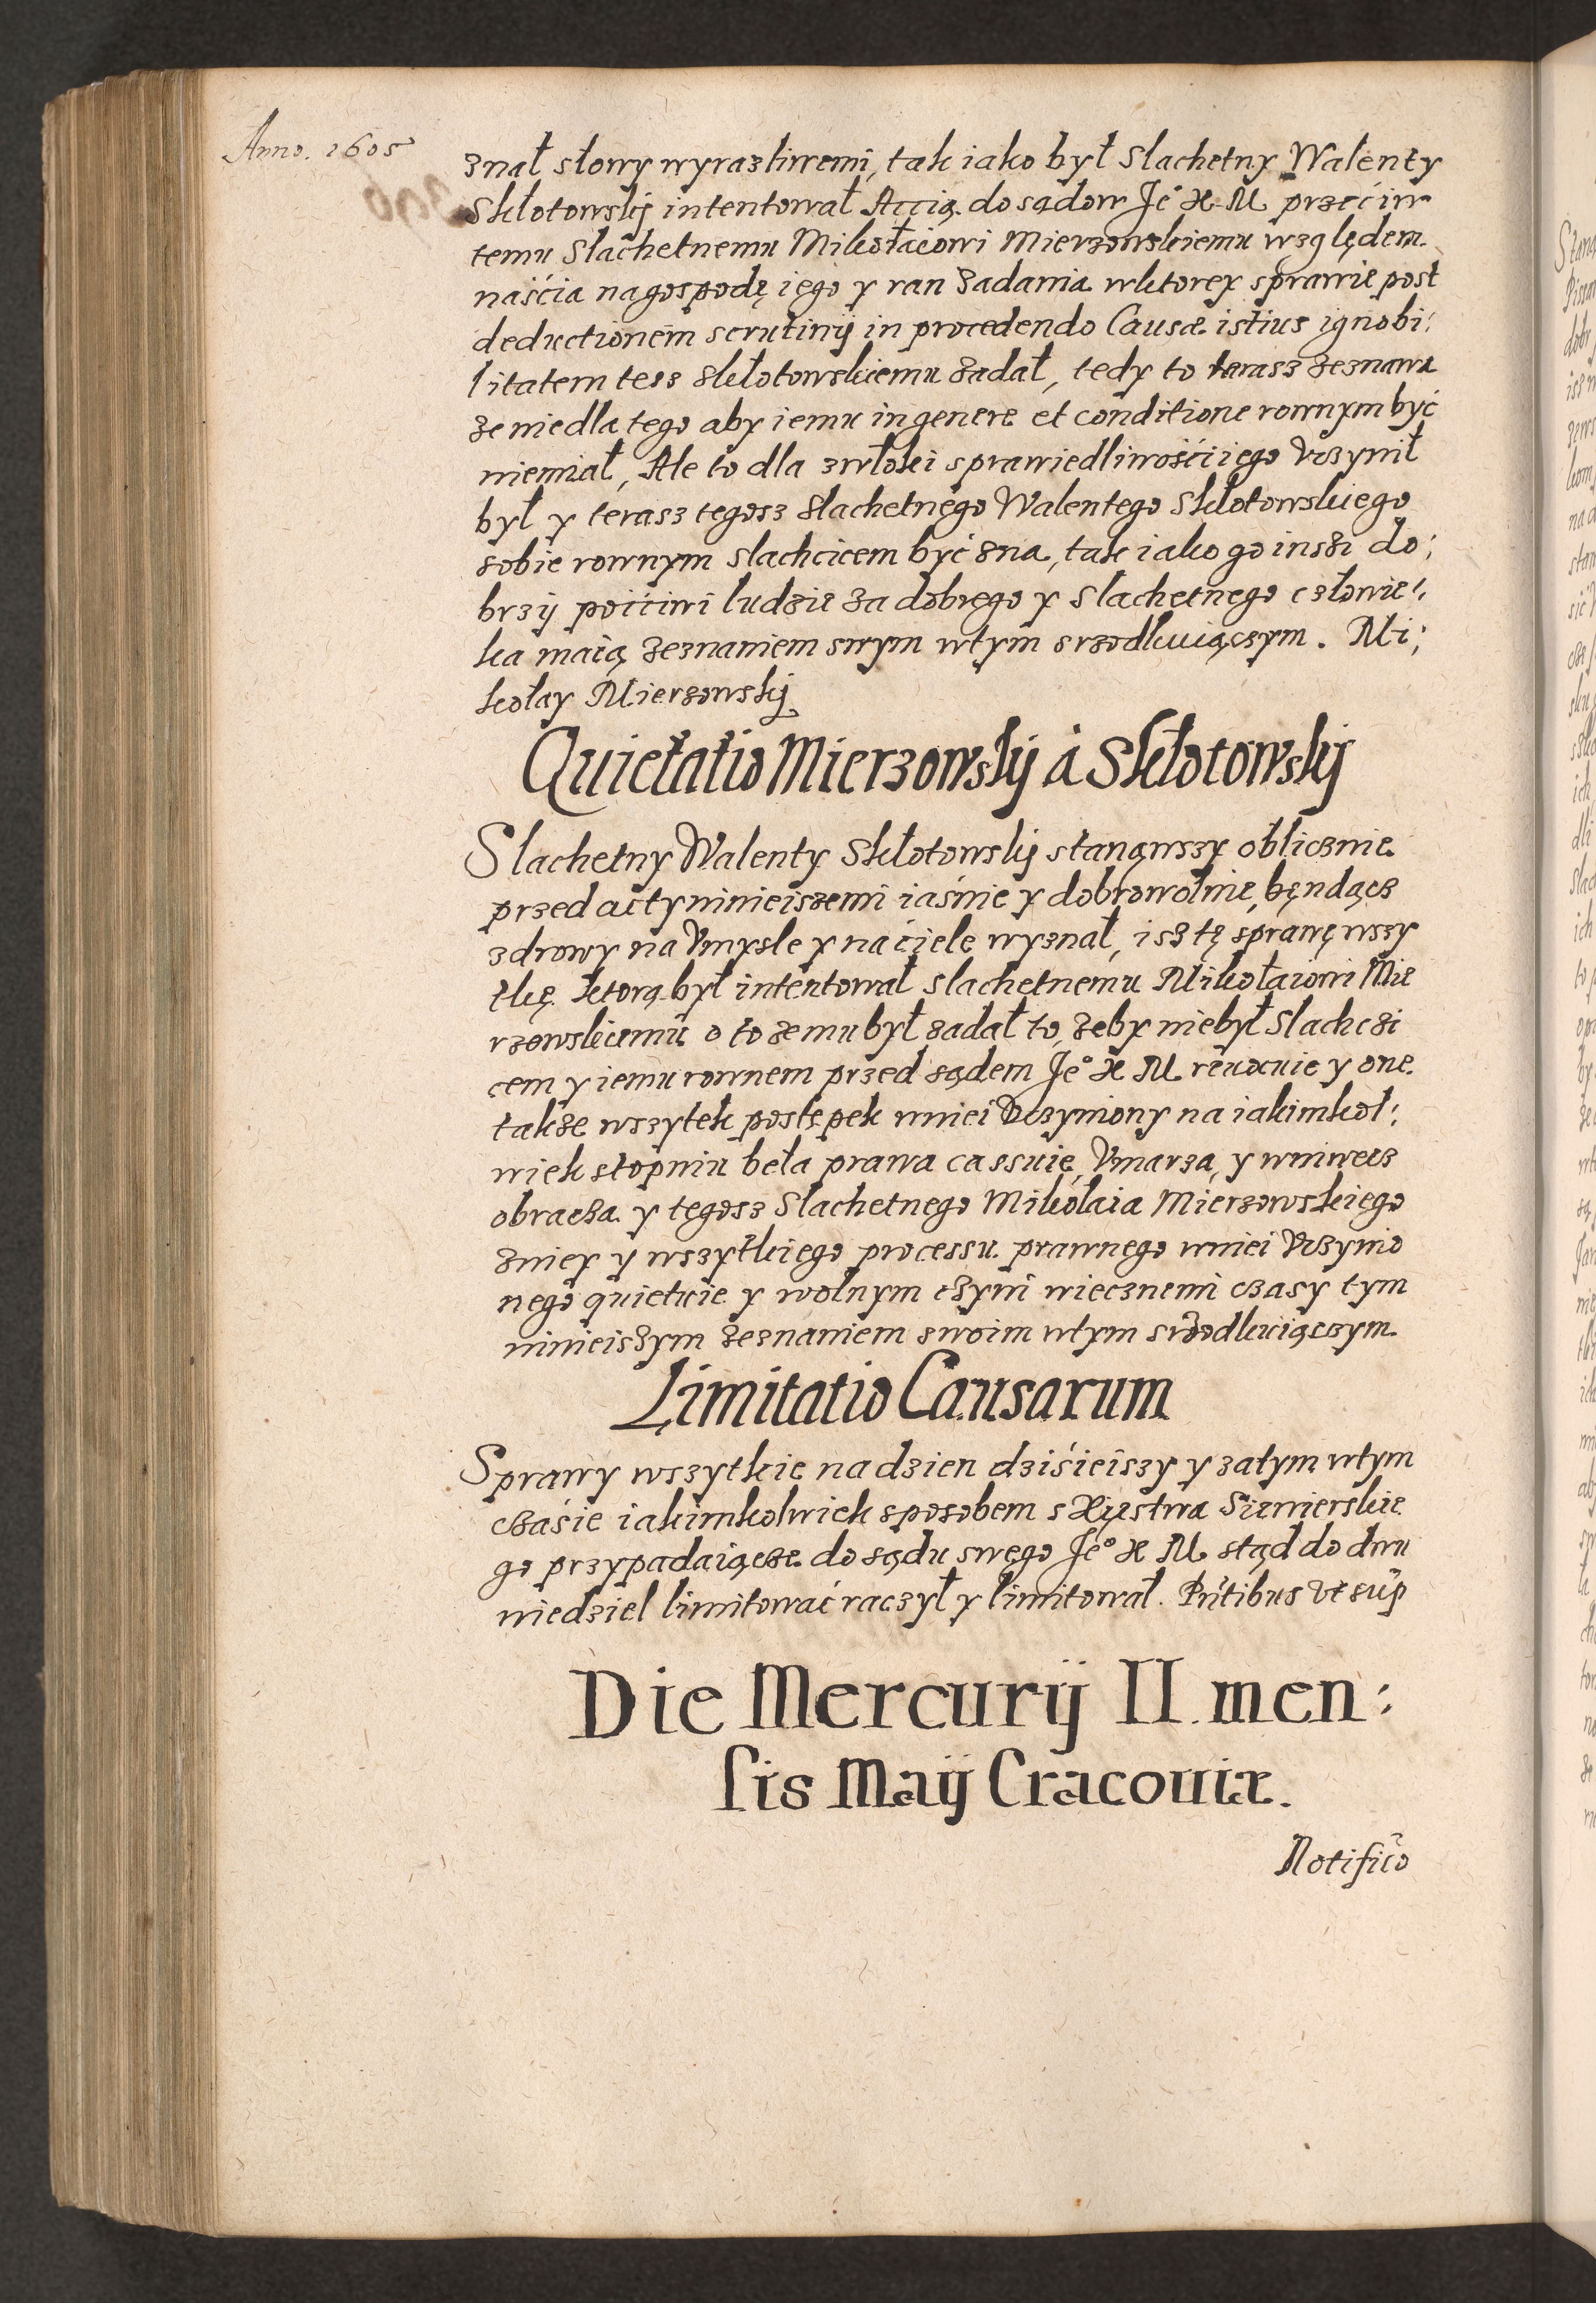 Anno. 1605
znał słowy wyrazliwemi, tak iako był Slachetny Walenty
Skłotowskÿ intentował Actią. do sądow Je° X M przećiw
temu Slachetnemu Mikołaiowi Mierzowskiemu względem.
naśćia na gospodę iego y ran Zadania wktorey sprawie post
deductionem scrutinÿ in procedendo Causæ istius ignobi:
litatem tesz Skłotowskiemu zadał, tedy to terasz zeznawa
ze niedla tego aby iemu in genere et conditione rownym być
niemiał, Ale to dla zwłoki sprawiedliwośći iego Vczynił
był y terasz tegosz Slachetnego Walentego Skłotowskiego
sobie rownym slachcicem być zna, tak iako go inszi do:
brzÿ poććiwi ludzie za dobrego y Slachetnego człowie:
ka maią zeznaniem swym wtym srzodkuiączym. Mi:
kołay Mierzowskÿ
Quietatio Mierzowskÿ á Skłotowskÿ
Slachetny Walenty Skłotowskÿ stanąwszy oblicznie.
przed acty ninieiszemi iaśnie y dobrowolnie, bęndącz
zdrowy na Vmysle y na ciele wyznał, isz tę sprawę wszy
tkę. ktorą był intentował slachetnemu Mikołaiowi Mie
rzowskiemu o to ze mu był zadał to, zeby niebył Slachczi
cem y iemu rownem przed sądem Je° X M reuocuie y one.
takze wszytek postępek wniei Vczyniony na iakimkol:
wiek stopniu beła prawa cassuie, Vmarza, y wniwecz
obracza. y tegosz Slachetnego Mikołaia Mierzowskiego
zniey y wszytkiego processu prawnego wniei Vczynio
nego quietuie y wolnym czyni wiecznemi czasy tym
ninieiszym zeznaniem swoim wtym srzodkuiączym.
Limitatio Causarum
Sprawy wszytkie na dzien dziśieiszy y zatym wtym
czaśie iakimkolwiek sposobem s Xięstwa Siewierskie
go przypadaiącze. do sądu swego Je° X M stąd do dwu
niedziel limitować raczył y limitował. Pntibus vt sup
Die Mercurÿ II. men:
sis Maÿ Cracouiæ.
Notifico